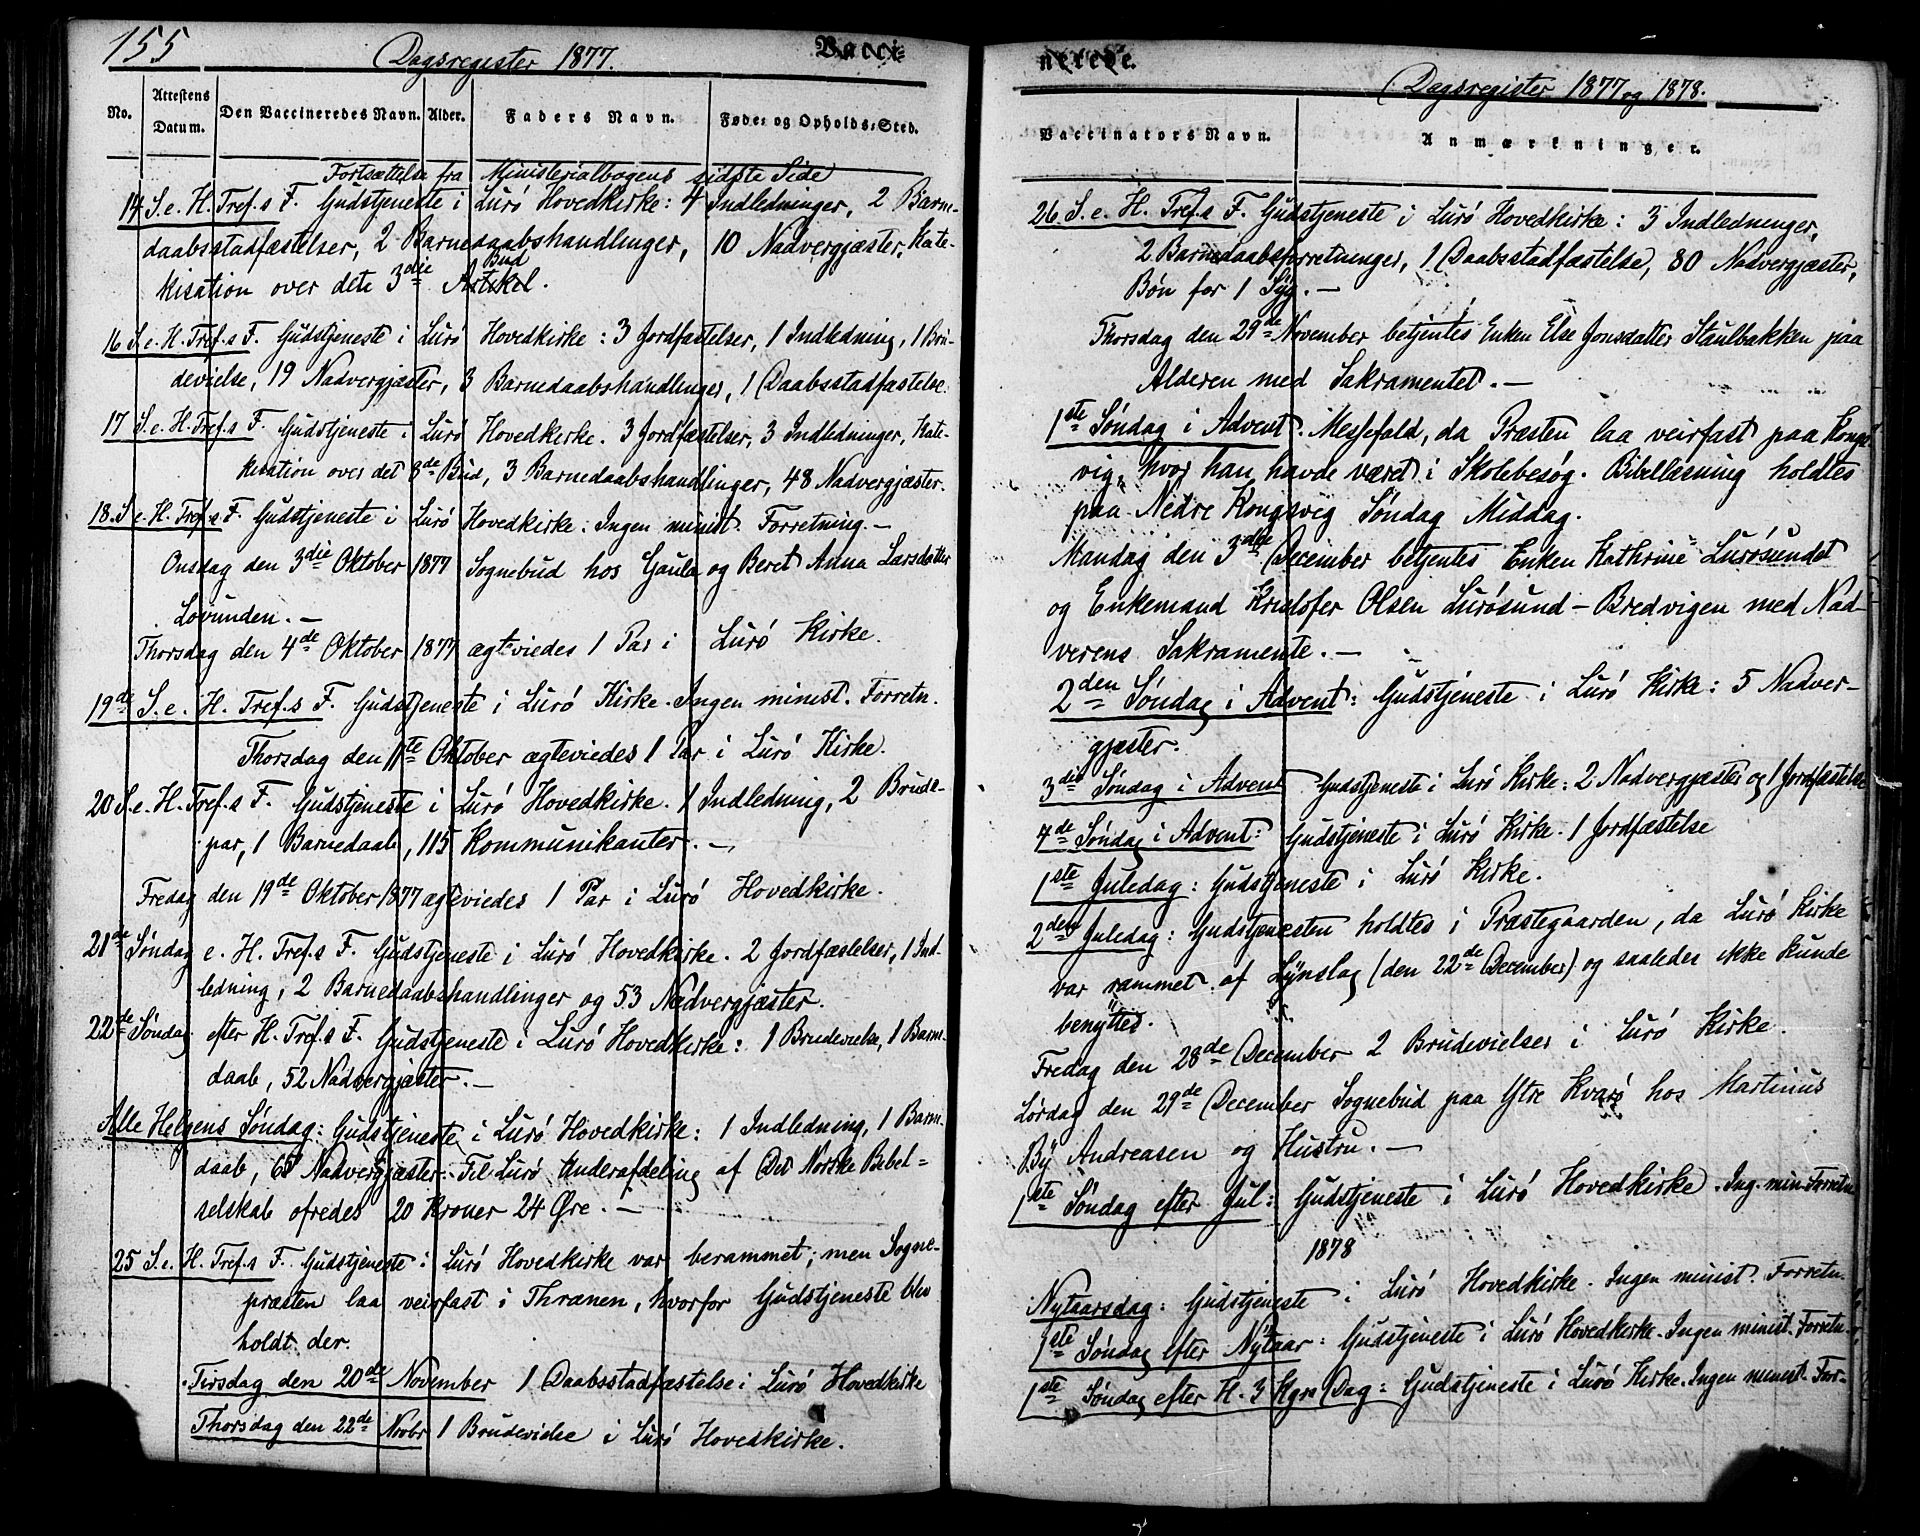 155
Dagsregister 1877.
Vacci-
No.
Attestens Datum.
Den Vaccineredes Navn.
Alder.
Faders Navn.
Føde- og Opholds-Sted.
Fortsættelse fra Ministerialbogens sidste Side
14 S. e. H. Tref.s F. Gudstjeneste i Lurö Hovedkirke: 4 Indledninger, 2 Barne-
daabsstadfæstelser, 2 Barnedaabshandlinger, 10 Nadvergjæster, Kate-
kisation over dete 3die Artikel. Bud
16 S. e. H. Tref.s F. Gudstjeneste i Lurö Hovedkirke: 3 Jordfæstelser, 1 Indledning, 1 Bru-
devielse, 19 Nadvergjæster, 3 Barnedaabshandlinger, 1 Daabsstadfæstelse.
17 S. e. H. Tref.s F. Gudstjeneste i Lurö Hovedkirke. 3 Jordfæstelser, 3 Indledninger, Kate-
kisation over det 8de Bud, 3 Barnedaabshandlinger, 48 Nadvergjæster.
18. S. e. H. Tref.s F. Gudstjeneste i Lurö Hovedkirke: Ingen minist. Forretning. –
Onsdag den 3die Oktober 1877 Sognebud hos Gaula og Beret Anna Larsdatter
Lovunden. –
Thorsdag den 4de Oktober 1877 ægteviedes 1 Par i Lurö Kirke.
19de S. e. H. Tref.s F. Gudstjeneste i Lurö Kirke. Ingen minist. Forretn.
Thorsdag den 11te Oktober ægteviedes 1 Par i Lurö Kirke.
20 S. e. H. Tref.s F. Gudstjeneste i Lurö Hovedkirke. 1 Indledning, 2 Brude-
par, 1 Barnedaab, 115 Kommunikanter. –
Fredag den 19de Oktober 1877 ægteviedes 1 Par i Lurö Hovedkirke.
21de Søndag e. H. Tref.s F. Gudstjeneste i Lurö Hovedkirke. 2 Jordfæstelser, 1 Ind-
ledning, 2 Barnedaabshandlinger og 53 Nadvergjæster.
22de Søndag efter H. Tref.s F. Gudstjeneste i Lurö Hovedkirke: 1 Brudevielse, 1 Barne-
daab, 52 Nadvergjæster. –
Alle Helgens Søndag: Gudstjeneste i Lurö Hovedkirke: 1 Indledning, 1 Barne-
daab, Nadvergjæster. Til Lurö Underafdeling af Det Norske Bibel=
selskab ofredes 20 Kroner 24 Øre. –
25 S. e. H. Tref.s F. Gudstjeneste i Lurö Hovedkirke var berammet; men Sogne-
præsten laa veirfast i Thrænen, hvorfor Gudstjeneste blev
holdt der.
Tirsdag den 20de November 1 Daabsstadfæstelse i Lurö Hovedkirke
Thorsdag den 22de Novbr 1 Brudevielse i Lurö Hovedkirke.
nerede.
Dagsregister 1877 og 1878.
Vaccinators Navn.
Anmærkninger.
26. S. e. H. Tref.s F. Gudstjeneste i Lurö Hovedkirke: 3 Indledninger,
2 Barnedaabsforretninger, 1 Daabsstadfæstelse, 80 Nadvergjæster,
Bøn for 1 Syg. –
Thorsdag den 29de November betjentes Enken Else Jonsdatter Staulbakken paa
Alderen med Sakramentet. –
1ste Søndag i Advent. Messefald, da Præsten laa veirfast paa Kongs-
vig, hvor han havde været i Skolebesøg. Bibellæsning holdtes
paa Nedre Kongsvig Søndag Middag.
Mandag den 3die December betjentes Enken Kathrine Lurösundet
og Enkemand Kristofer Olsen Lurösund – Bredvigen med Nad-
verens Sakramente. –
2den Søndag i Advent: Gudstjeneste i Lurö Kirke: 5 Nadver-
gjæster.
3die Søndag i Advent Gudstjeneste i Lurö Kirke: 2 Nadvergjæster og 1 Jordfæstelse
4de Søndag i Advent: Gudstjeneste i Lurö Kirke. 1 Jordfæstelse
1ste Juledag: Gudstjeneste i Lurö Kirke.
2den Juledag: Gudstjenesten holdtes i Præstegaarden, da Lurö Kirke
var rammet af Lynslag (den 22de December) og saaledes ikke kunde
benyttes.
Fredag den 28de December 2 Brudevielser i Lurö Kirke.
Lørdag den 29de December Sognebud paa Ytre Kvarö hos Martinus
By Andreasen og Hustru. –
1ste Søndag efter Jul: Gudstjeneste i Lurö Hovedkirke. Ing. min. Forretn
1878
Nytaarsdag: Gudstjeneste i Lurö Hovedkirke. Ingen minist. Forretn.
1ste Søndag efter Nytaar: Gudstjeneste i Lurö Hovedkirke. Ingen minist. Forretn.
1ste Søndag efter H. 3 Kgrs Dag: Gudstjeneste i Lurö Kirke. Ingen minist. Forr-